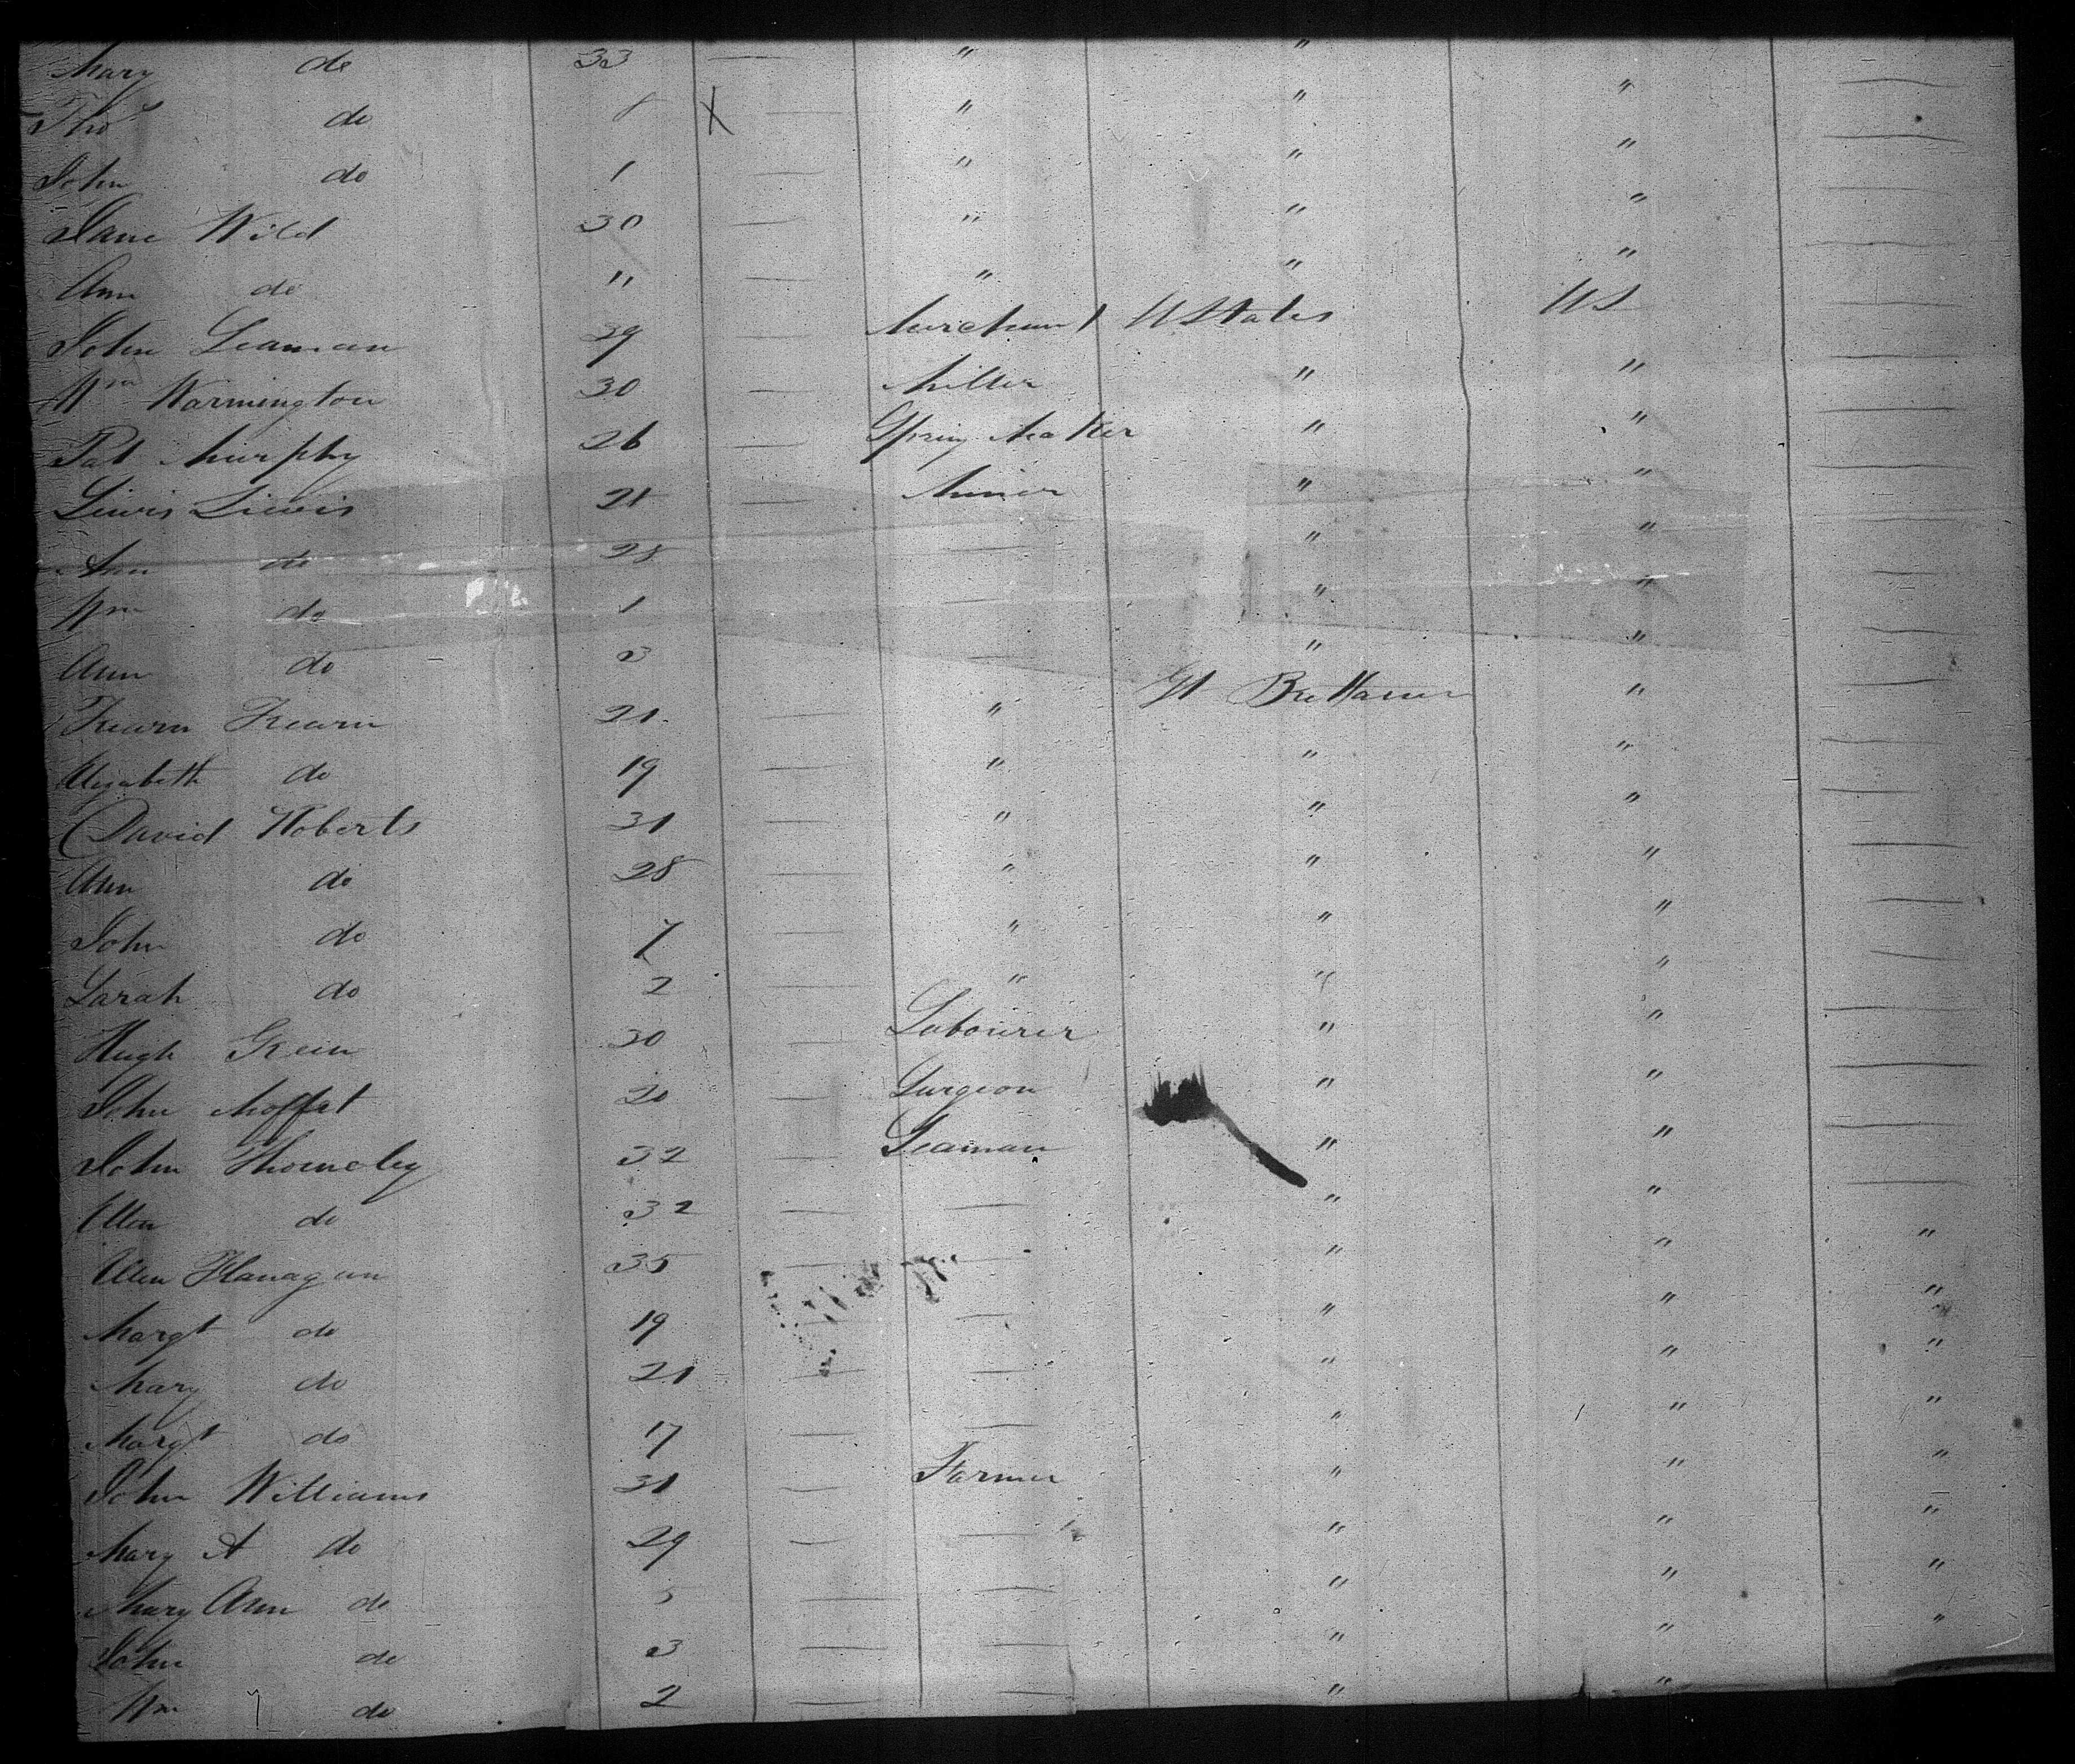 Mary do 33 — " "
Thos do X — " " " —
John do 1 — " " " —
Jane Wild 30 — " " " —
Ann do " — " " " —
John Seaman 29 — Merchant U States US —
Wm Warmington 30 — Miller " " —
Pat Murphy 26 — Spring Maker " " —
Lewis Lewis 21 — Miner " " —
Ann do 28 — — " " —
Wm do 1 — — " " —
Ann do 3 — — " " —
21 — " Gt Brittain " —
Elizabeth do 19 — " " " —
David Roberts 31 — " " " —
Ann do 28 — " " " —
John do 7 — " " " —
Sarah do 2 — " " " —
Hugh Green 30 — Labourer " " —
John Moffat 20 — Surgeon " " —
John 32 — Seaman " " —
Ellen do 32 — — " " —
Ellen Flanagan 35 — " " "
Margt do 19 — " " "
Mary do 21 — — " " "
Margt do 17 — — " " "
John Williams 31 — Farmer " " "
Mary A do 29 — — " " "
Mary Ann do 5 — — " " "
John do 3 — — " " "
Wm do 2 — — " " "